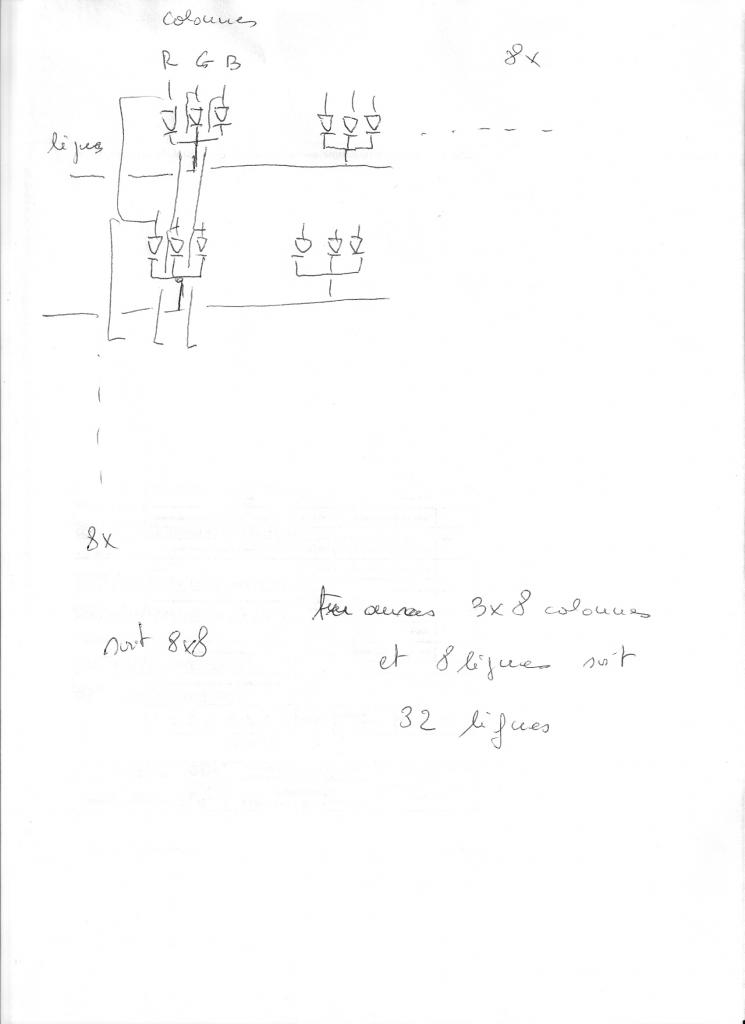 colonnes
R G B
8x
lignes
8x
tu auras 3x8 colonnes
soit 8x8
et 8 lignes soit
32 lignes